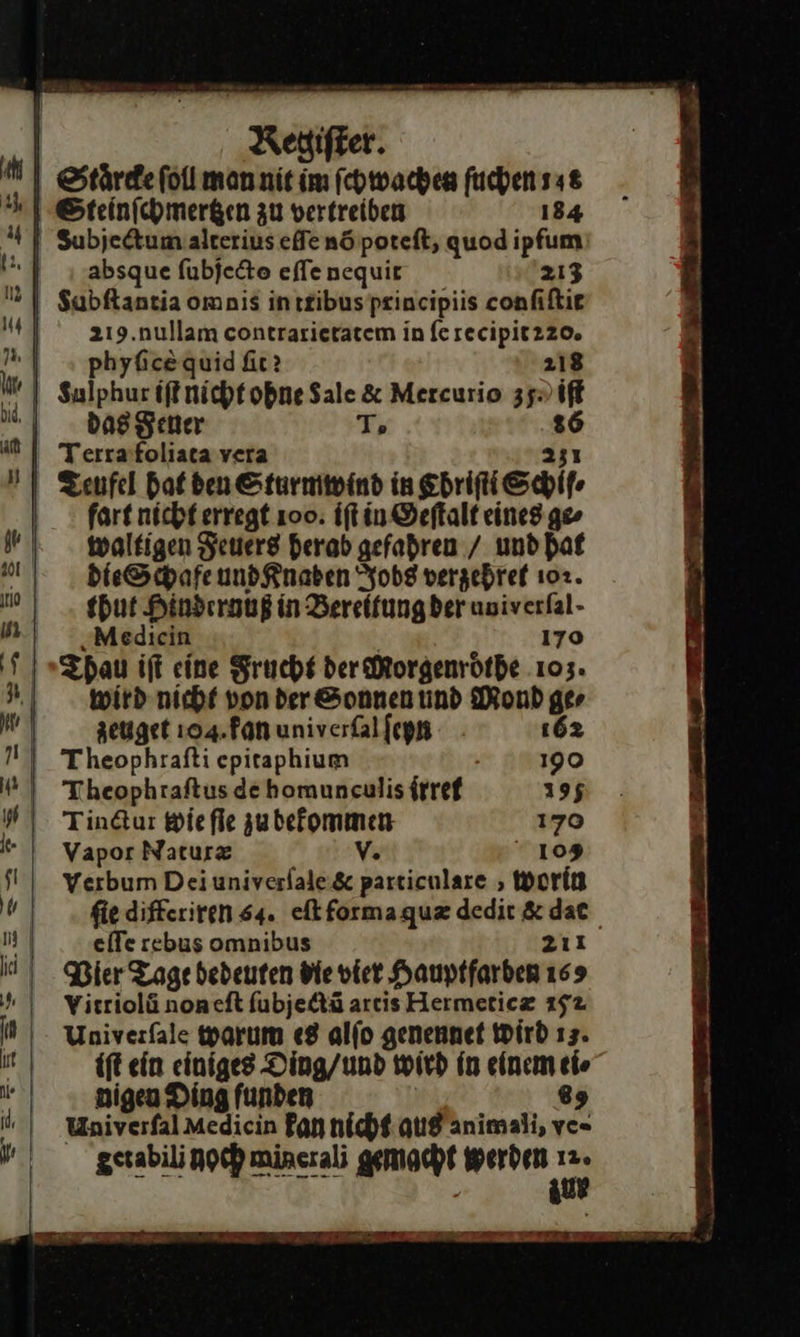 Register.
Stårcke soll man nit im schwachen suchen 148
Steinschmertzen zu vertreiben 184
Subjectum alterius esse nō potest, quod ipsum
absque subjecto esse nequit 213
Substantia omnis in tribus principiis consistit
219. nullam contrarietatem in se recipit 220.
physicè quid sit? 218
Sulphur ist nicht ohne Sale & Mercurio 35. ist
das Feuer 86
T.
Terra foliata vera 231
Teufel hat den Sturmwind in Christi Schif-
fart nicht erregt 100. ist in Gestalt eines ge-
waltigen Feuers herab gefahren / und hat
die Schafe und Knaben Jobs verzehret 102.
thut Hindernuß in Bereitung der universal-
Medicin 170
Thau ist eine Frucht der Morgenrôthe 103.
wird nicht von der Sonnen und Mond ge-
zeuget 104. kan universal seyn 162
Theophrasti epitaphium 190
Theophrastus de homunculis irret 195
Tinctur wie sie zu bekommen 170
V.
Vapor Naturæ 109
Verbum Dei universale & particulare, worin
sie differiren 64. est forma quæ dedit & dat
esse rebus omnibus 211
Vier Tage bedeuten die vier Hauptfarben 169
Vitriolū non est subjectū artis Hermeticæ 152
Universale warum es also genennet wird 13.
ist ein einiges Ding/ und wird in einem ei-
nigen Ding funden 89
Universal Medicin kan nicht aus animali, ve-
getabili noch minerali gemacht werden 12.
zur